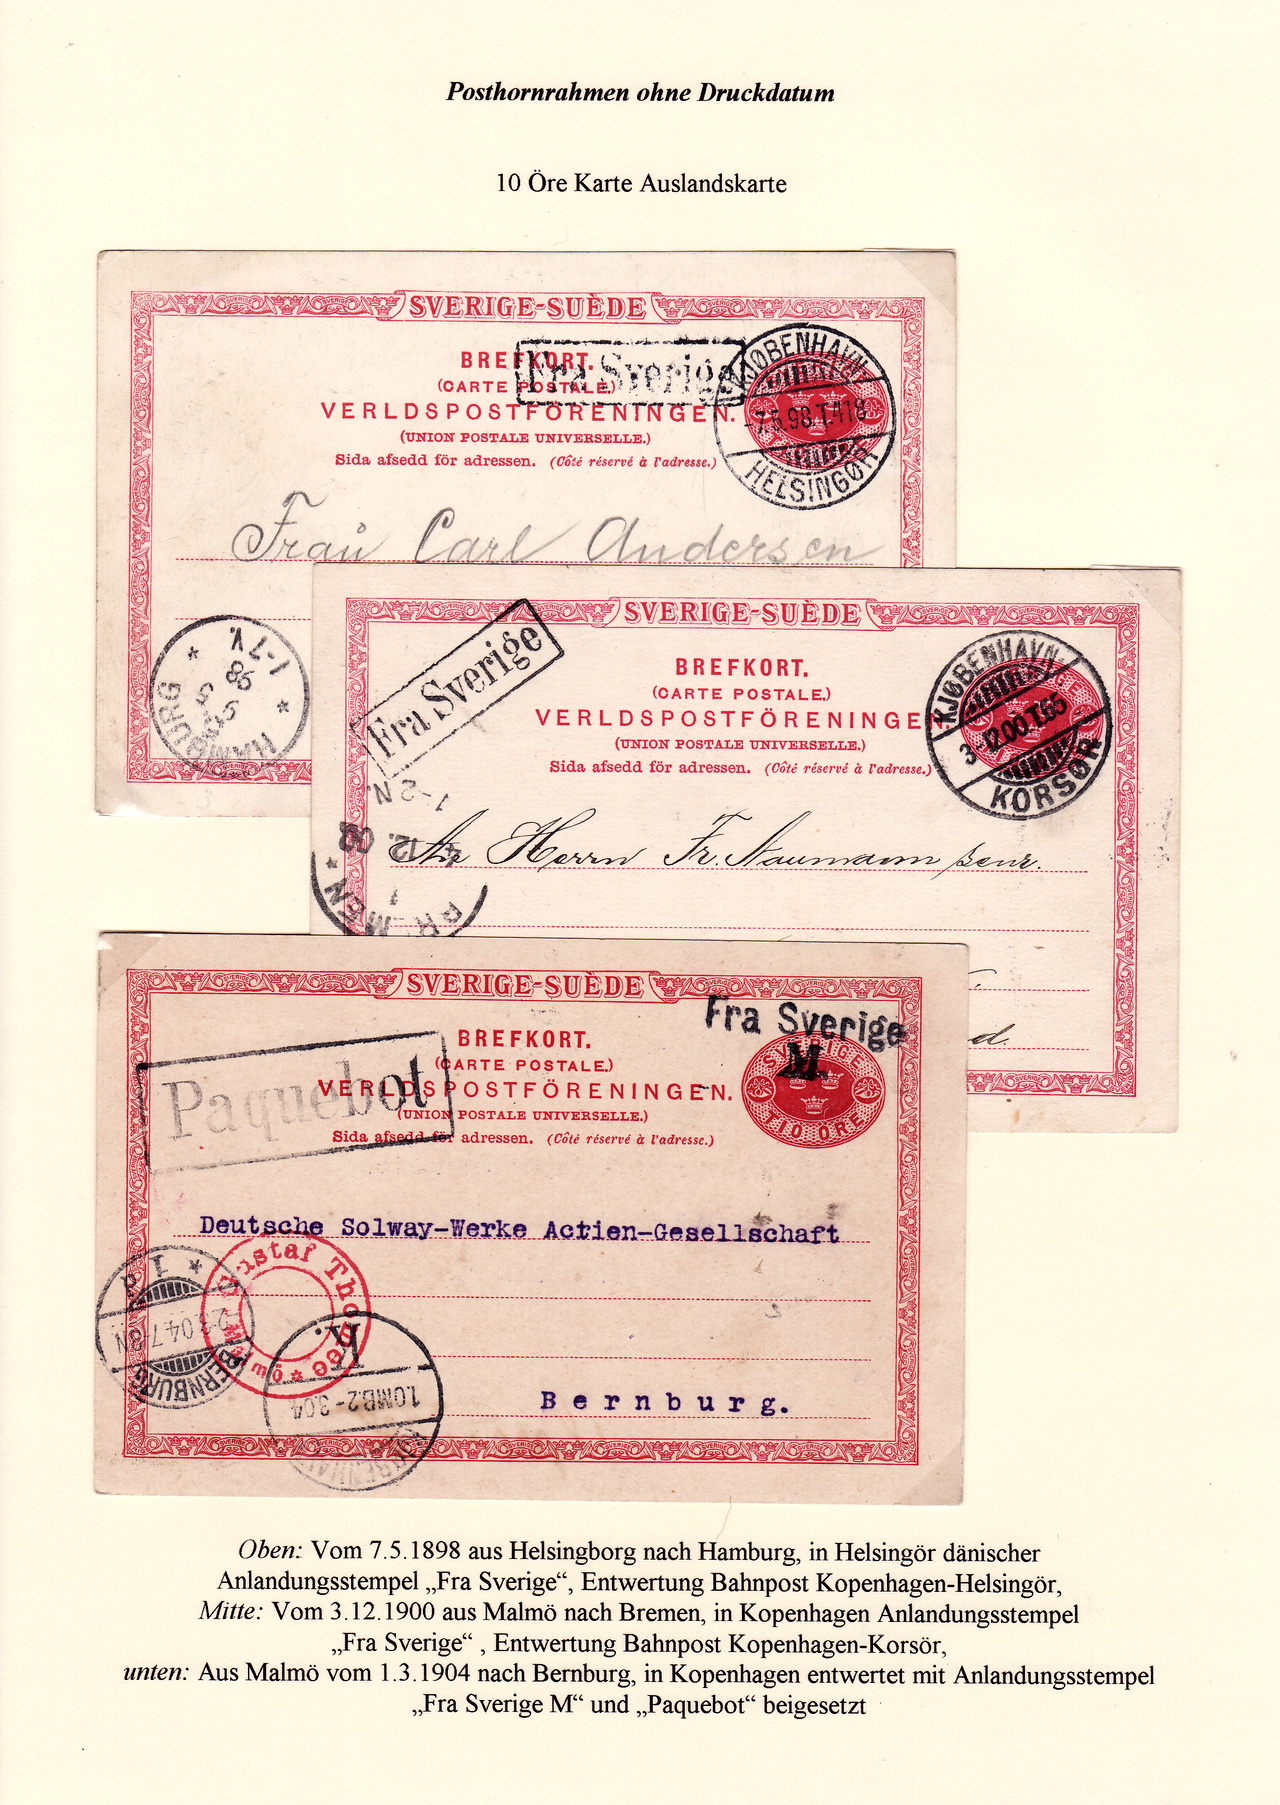 Posthornrahmen ohne Druckdatum
10 Öre Karte Auslandskarte
SVERIGE-SUÈDE
BREFKORT.
(CARTE POSTALE.)
VERLDSPOSTFÖRENINGEN.
(UNION POSTALE UNIVERSELLE.)
Sida afsedd för adressen. (Côté réservé à l'adresse.)
Fra Sverige
KJØBENHAVN
-7.5.98.T.418
HELSINGØR
Frau Carl Andersen
HAMBURG
9 5
98
1-7 V.
SVERIGE-SUÈDE
BREFKORT.
(CARTE POSTALE.)
VERLDSPOSTFÖRENINGE
(UNION POSTALE UNIVERSELLE.)
Sida afsedd för adressen. (Côté réservé à l'adresse.)
Fra Sverige
KJØBENHAVN
3-12.00.T.65
KORSØR
An Herrn Fr. Naumann senr.
1-2 N.
4.12.00
BREMEN
SVERIGE-SUÈDE
BREFKORT.
(CARTE POSTALE.)
VERLDSPOSTFÖRENINGEN.
(UNION POSTALE UNIVERSELLE.)
Sida afsedd för adressen. (Côté réservé à l'adresse.)
Fra Sverige
M.
SVERIGE
TIO ÖRE
Paquebot
Deutsche Solway-Werke Actien-Gesellschaft
Gustaf Thomée
Malmö
BERNBURG
2.3.04.7-8N
K.
1.OMB.2-3.04
KJØBENHAVN
Bernburg.
Oben: Vom 7.5.1898 aus Helsingborg nach Hamburg, in Helsingör dänischer
Anlandungsstempel „Fra Sverige“, Entwertung Bahnpost Kopenhagen-Helsingör,
Mitte: Vom 3.12.1900 aus Malmö nach Bremen, in Kopenhagen Anlandungsstempel
„Fra Sverige“ , Entwertung Bahnpost Kopenhagen-Korsör,
unten: Aus Malmö vom 1.3.1904 nach Bernburg, in Kopenhagen entwertet mit Anlandungsstempel
„Fra Sverige M“ und „Paquebot“ beigesetzt